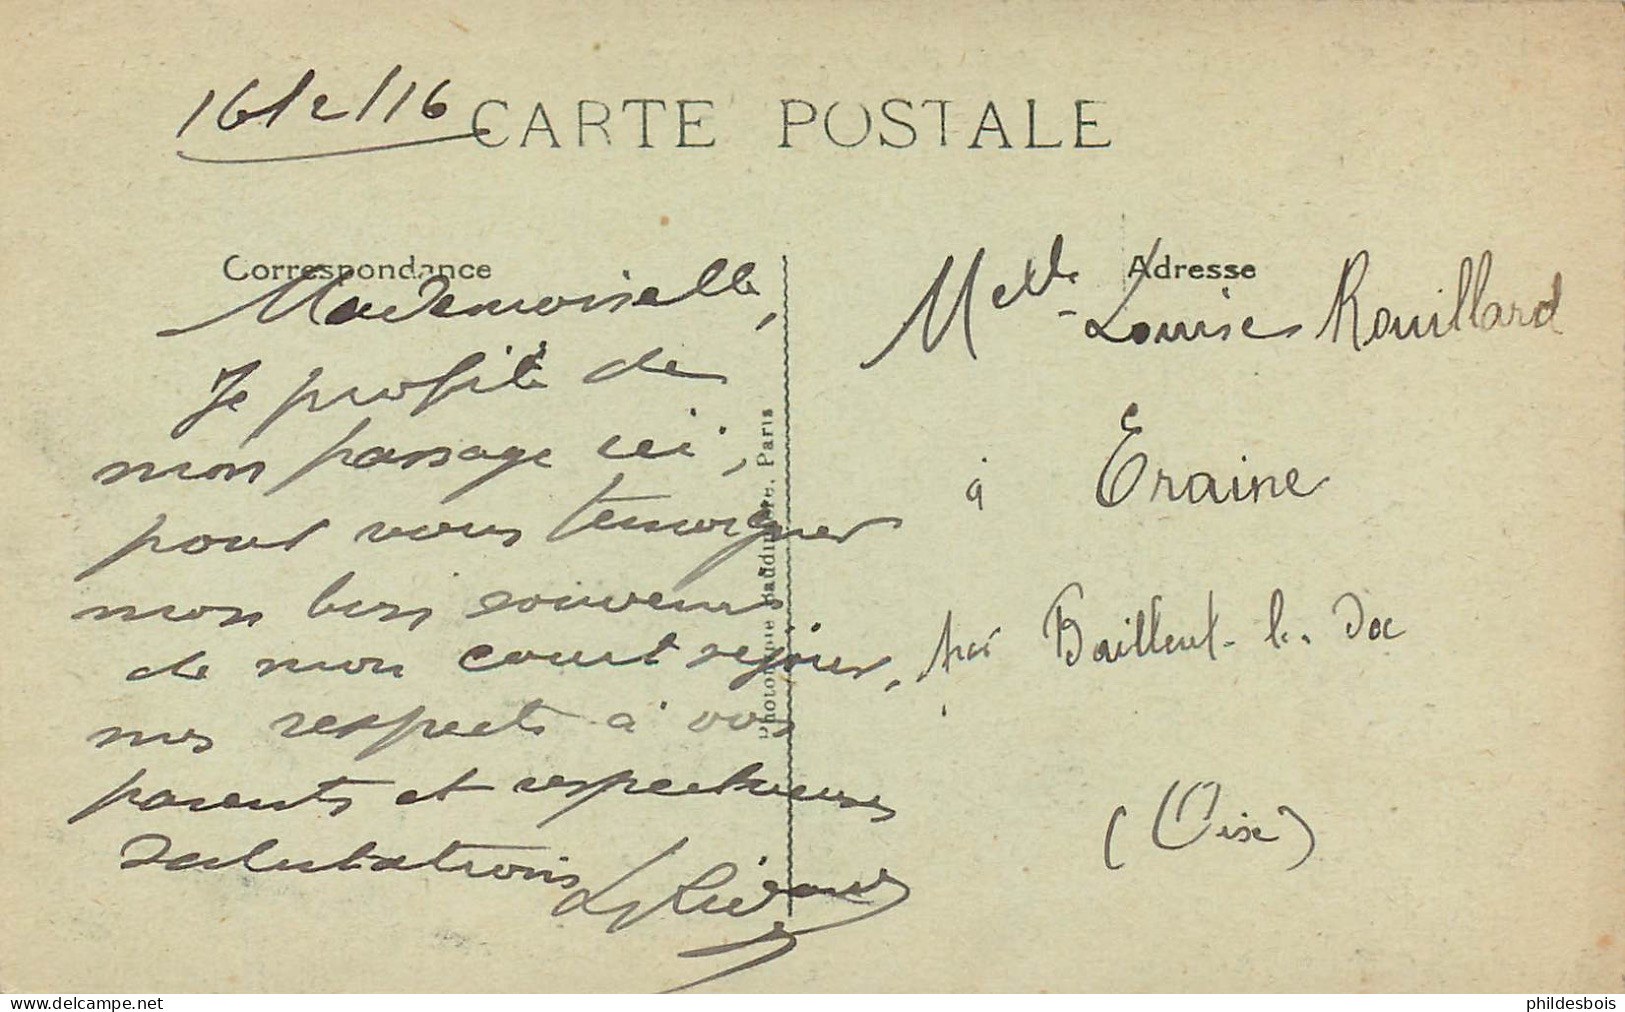 16/2/16
CARTE POSTALE
Correspondance
Adresse
Mademoiselle,
Je profite de
mon passage ici,
pour vous temoigner
mon bon souvenir
de mon court sejour,
mes respects à vos
parents et respectueuses
salutations
Melle Louise Rouillard
à Eraine
par Bailleul-le-Soc
(Oise)
Phototypie Baudinière, Paris
delcampe.net
phildesbois